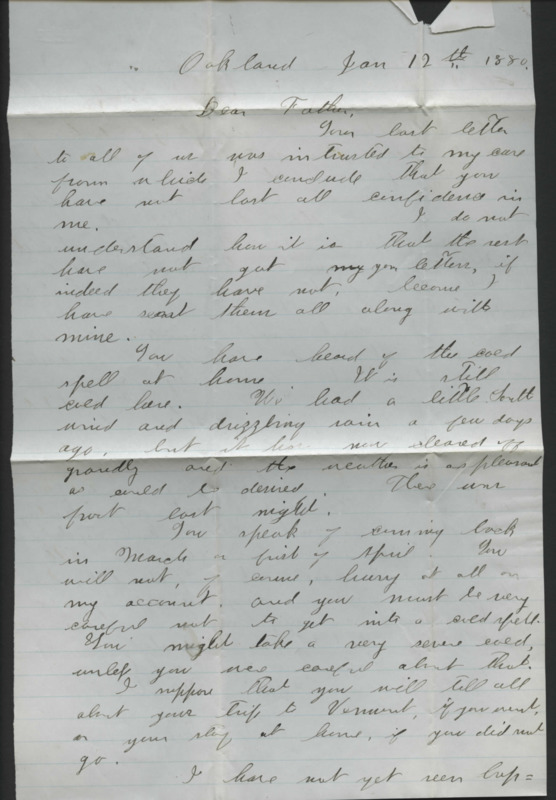 Oakland Jan 12th. 1880.
Dear Father,
Your last letter
to all of us was intrusted to my care
from which I conclude that you
have not lost all confidence in
me. I do not
understand how it is that the rest
have not got your letters, if
indeed they have not, because I
have sent them all along with
mine.
You have heard of the cold
spell at home It is still
cold here. We had a little South
wind and drizzling rain a few days
ago, but it has now cleared off
grandly and the weather is as pleasant
as could be desired. There was
frost last night.
You speak of coming back
in March or first of April You
will not, of course, hurry at all on
my account. and you must be very
careful not to get into a cold spell.
You might take a very severe cold,
unless you are careful about that.
I suppose that you will tell all
about your trip to Vermont, if you went,
or your stay at home, if you did not
go.
I have not yet seen Cap=